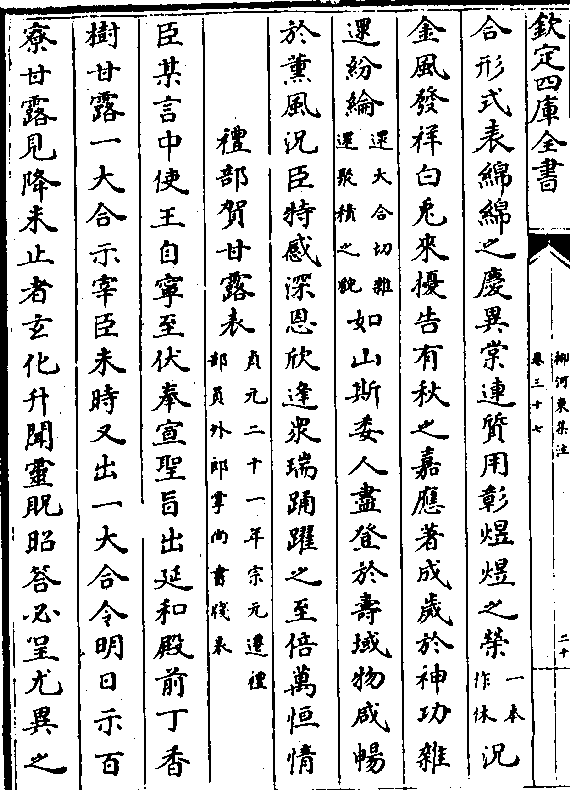 欽定四庫全書
柳河東集注
卷三十七
二十
合形式表綿綿之慶異棠連質用彰煜煜之榮一本作休況
金風發祥白兎來擾告有秋之嘉應著成歲於神功雜
遝紛綸遝大合切雜遝聚積之貌如山斯委人盡登於壽域物咸暢
於薰風況臣特感深恩欣逢衆瑞踊躍之至倍萬恒情
禮部賀甘露表貞元二十一年宗元遷禮部員外郎掌尚書牋表
臣某言中使王自寧至伏奉宣聖旨出延和殿前丁香
樹甘露一大合示宰臣未時又出一大合令明日示百
寮甘露見降未止者玄化升聞靈貺昭答必呈尤異之